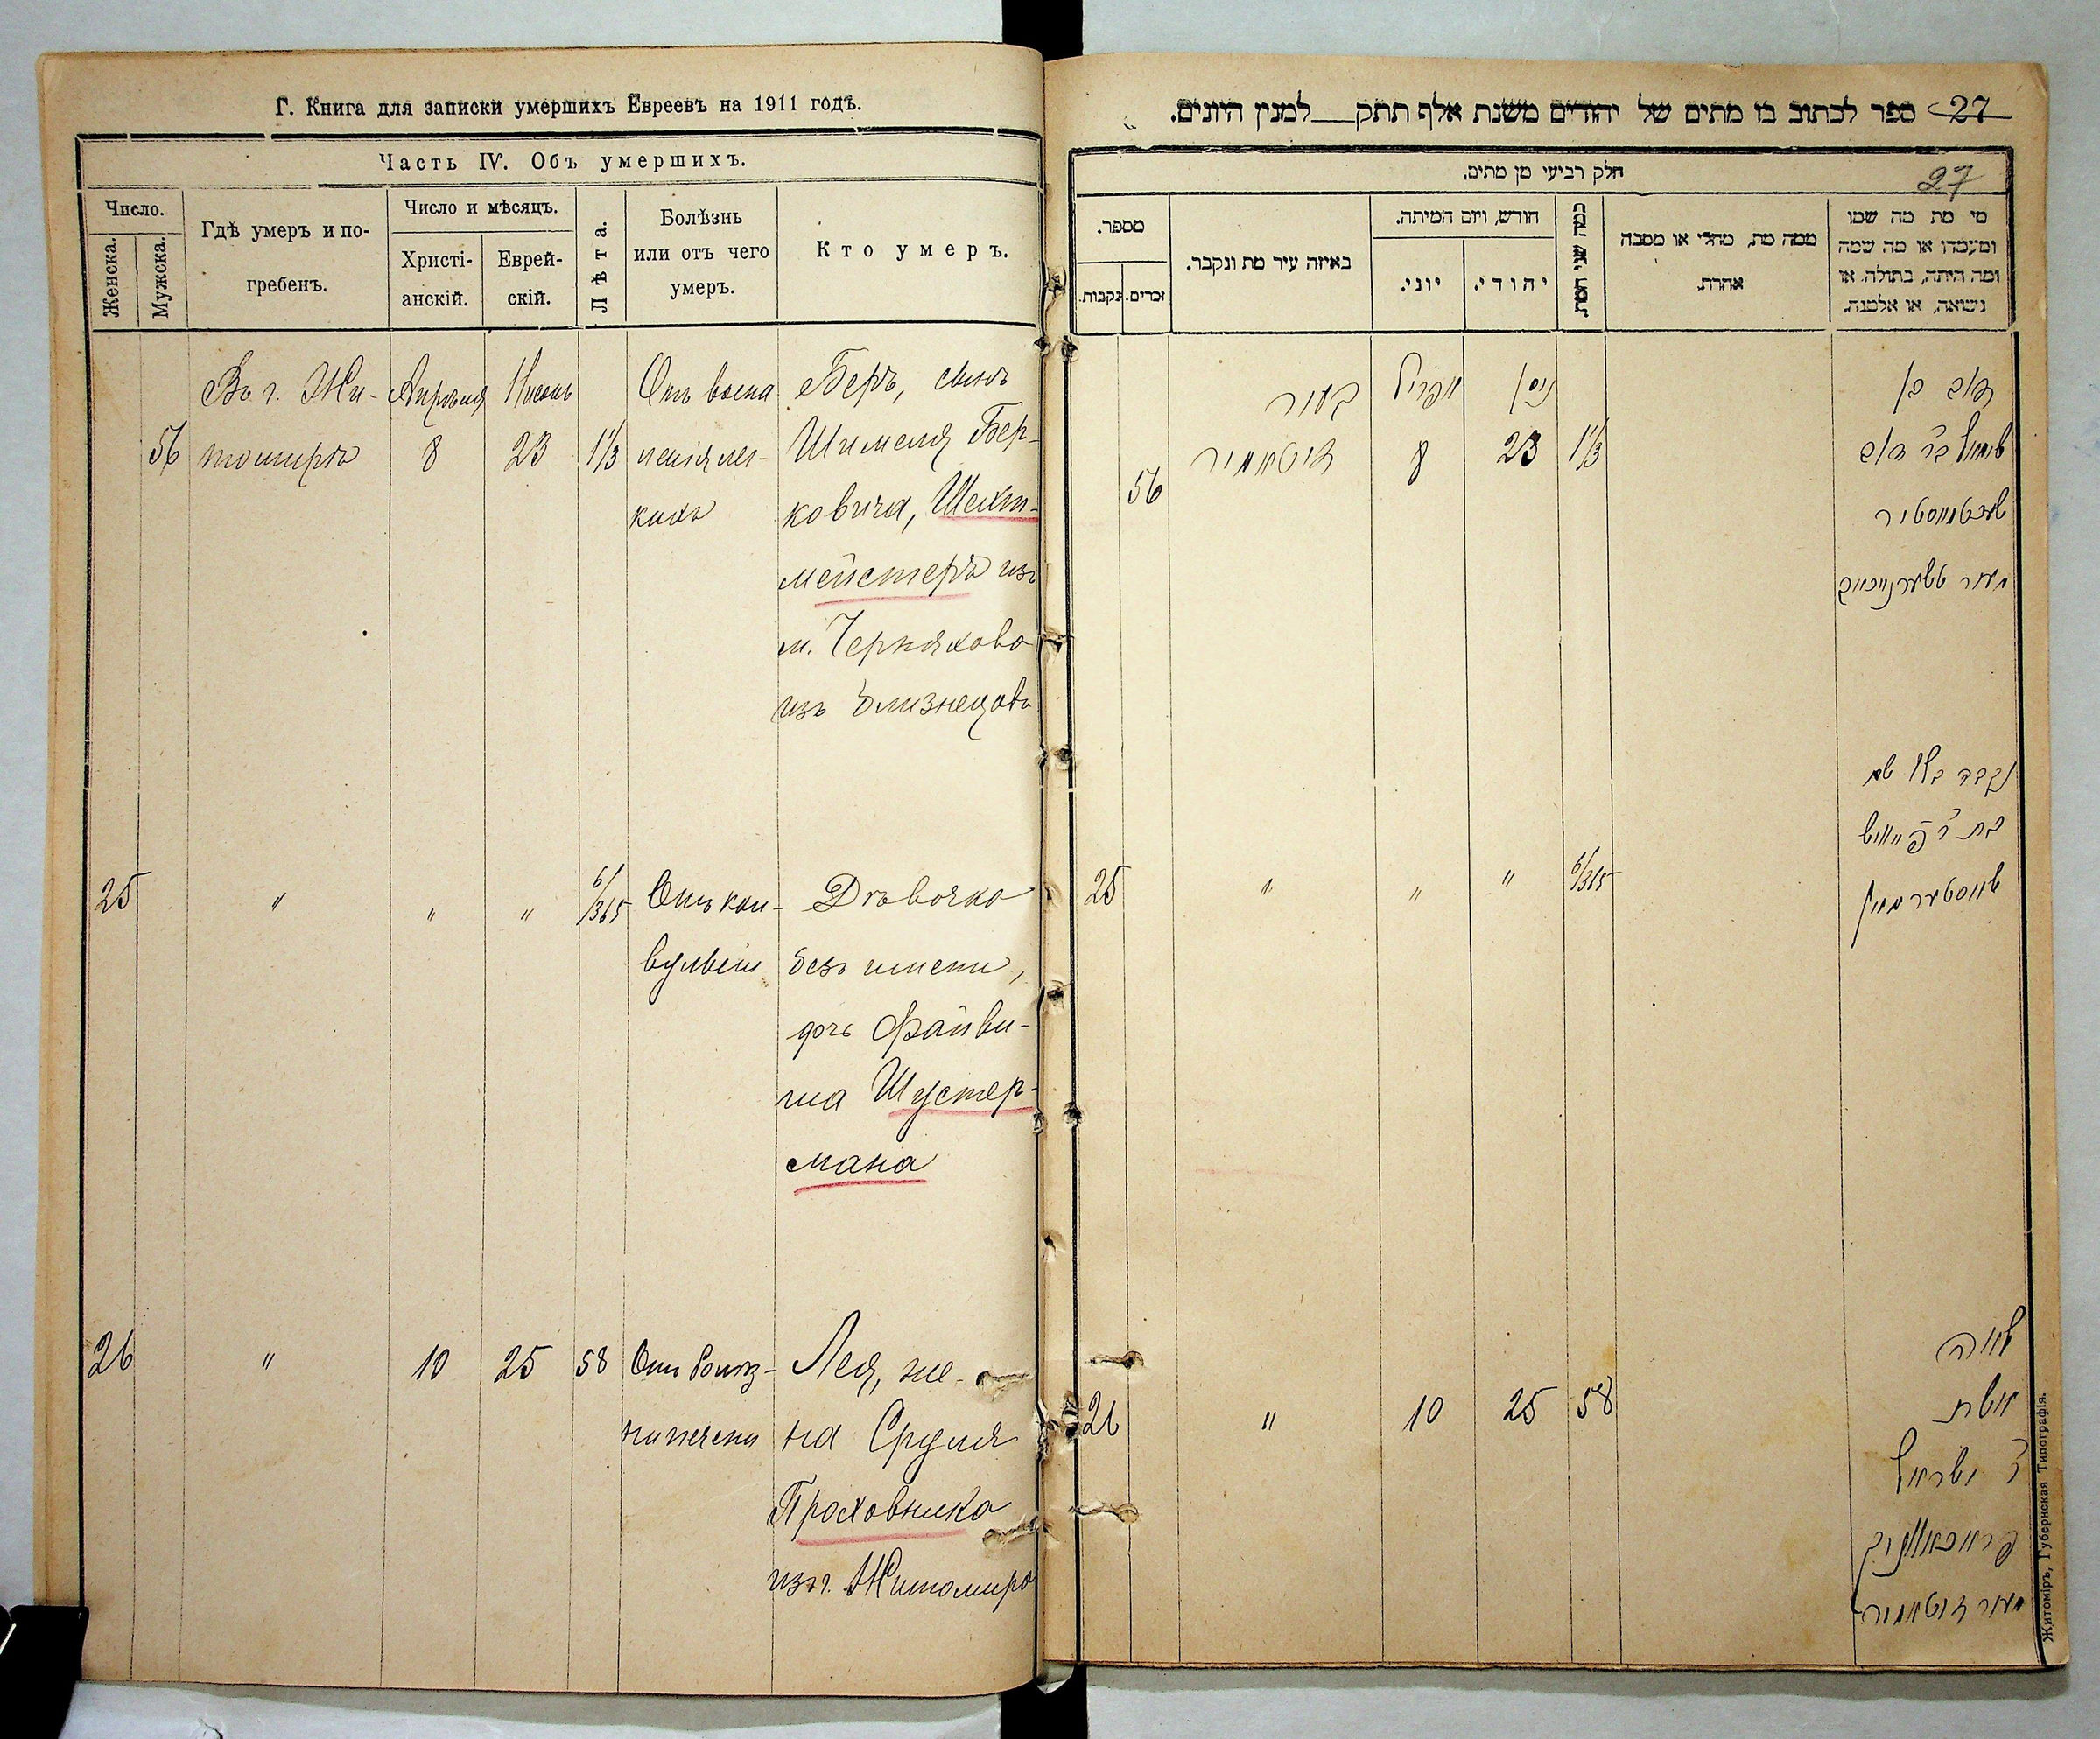 Г. Книга для записки умершихъ Евреевъ на 1911 годъ.
Часть IV. Объ умершихъ.
Число.
Женска.
Мужска.
Гдѣ умеръ и по-
гребенъ.
Число и мѣсяцъ.
Христі-
анскій.
Еврей-
скій.
Лѣта.
Болѣзнь
или отъ чего
умеръ.
Кто умеръ.
56
Въ г. Жи-
томирѣ
Апрѣля
8
Нисонъ
23
1 1/3
Отъ воспа
ленія лег-
кихъ
Беръ, сынъ
Шмеля Бер-
ковича, Шехт-
мейстеръ изъ
м. Черняхова
изъ близнецовъ
25
"
"
"
6/365
Отъ кон-
вульсіи
Дѣвочка
безъ имени,
дочь Файви-
ша Шустер-
мана
26
"
10
25
58
Отъ болѣз-
ни печени
Лея, же-
на Сруля
Проховника
изъ г. Житомира
27 ספר לכתוב בו מתים של יהודים משנת אלף תתק למנין היונים.
חלק רביעי מן מתים.
27
מספר.
נקבות.
זכרים.
באיזה עיר מת ונקבר.
חודש, ויום המיתה.
יוני.
יהודי.
כמה שני המת.
ממה מת, מחלי או מסבה
אחרת.
מי מת מה שמו
ומעמדו או מה שמה
ומה היתה, בתולה, או
נשואה, או אלמנה.
56
בעיר
זיטאמיר
אפריל
8
ניסן
23
1 1/3
דוב בן
שמואל בר דוב
שעכטמייסטער
מעיר טשערניכאוו
25
"
"
"
6/365
נקבה בלי שם
בת ר' פייוויש
שוסטערמאן
26
"
10
25
58
לאה
אשת
ר' ישראל
פראכאווניק
מעיר זיטאמיר
Житоміръ, Губернская Типографія.